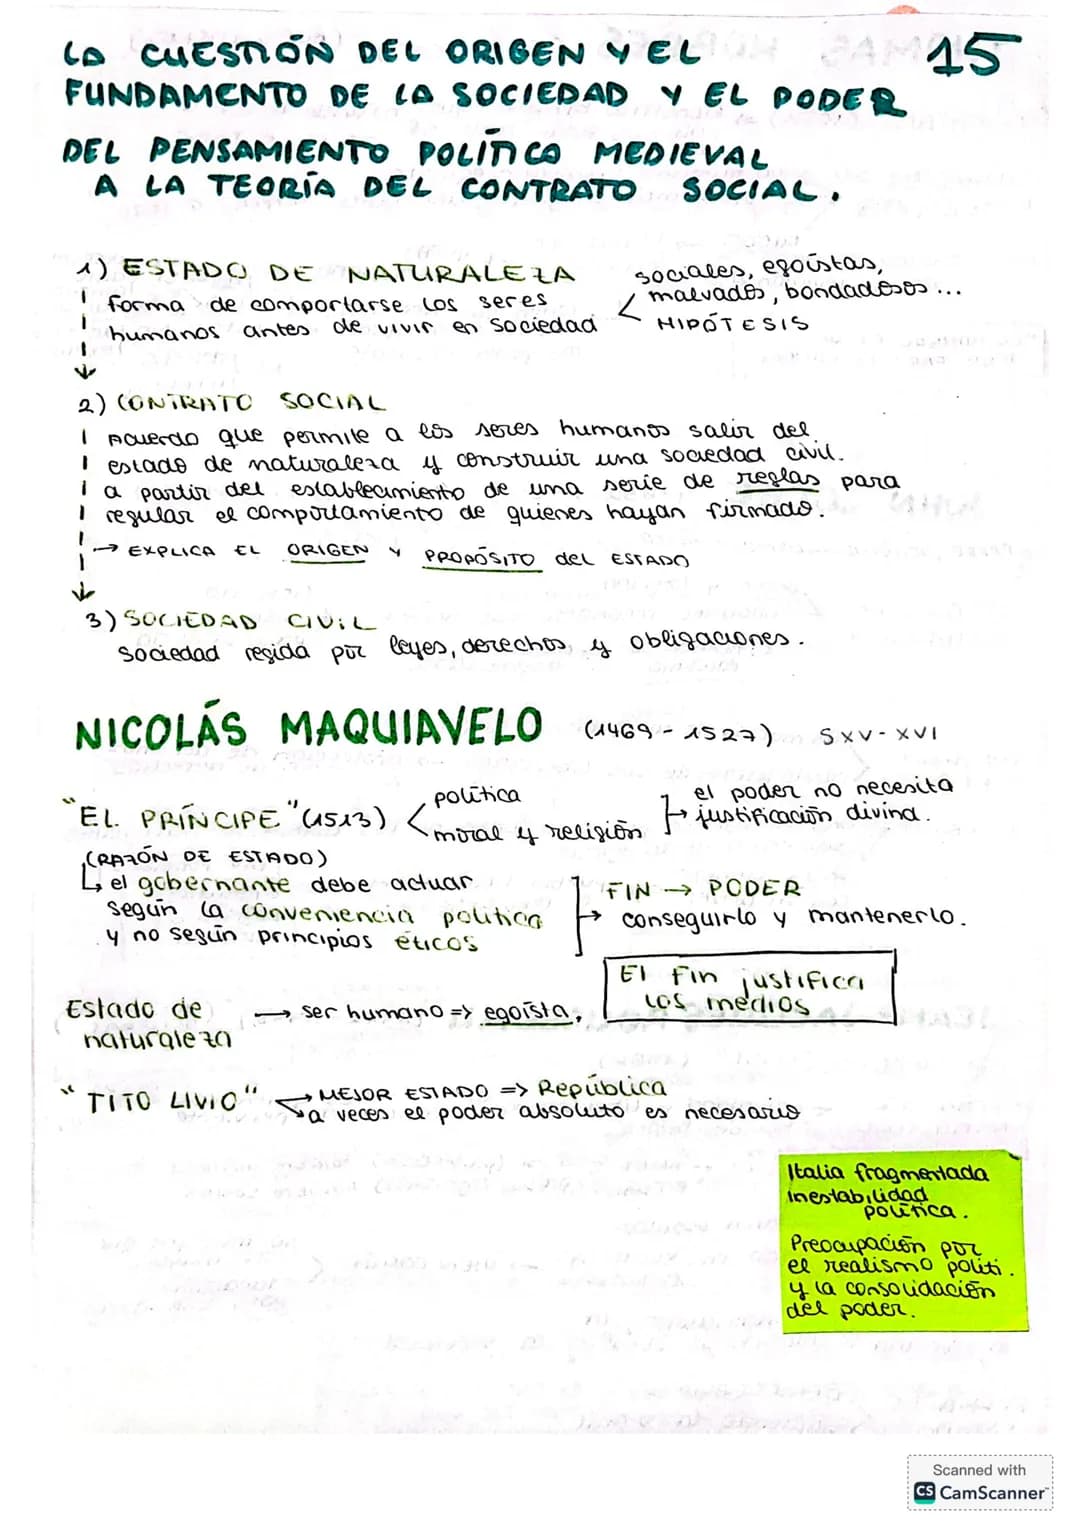 LA CUESTIÓN DEL ORIGEN Y EL 15
FUNDAMENTO DE LA SOCIEDAD Y EL PODER
DEL PENSAMIENTO POLÍTICO MEDIEVAL
A LA TEORÍA DEL CONTRATO SOCIAL.
1) ESTADO DE NATURALEZA
forma de comportarse los seres
humanos antes de vivir en sociedad
sociales, egoístas,
malvados, bondadosos...
HIPÓTESIS
2) CONTRATO SOCIAL
Acuerdo que permite a los seres humanos salir del
estado de naturaleza y construir una sociedad civil.
a partir del establecimiento de una serie de reglas para
regular el comportamiento de quienes hayan firmado.
→ EXPLICA EL ORIGEN Y PROPÓSITO del ESTADO
3) SOCIEDAD CIVIL
Sociedad regida por leyes, derechos y obligaciones.
NICOLÁS MAQUIAVELO (1469-1527) SXV-XVI
"EL PRÍNCIPE" (1513)
política
moral y religión
el poder no necesita
justificación divina.
(RAZÓN DE ESTADO)
el gobernante debe actuar
según la conveniencia política
y no según principios éticos
FIN → PODER
conseguirlo y mantenerlo.
El fin justifica
los medios
Estado de
naturaleza
→ ser humano => egoísta.
"TITO LIVIO"
→ MEJOR ESTADO => República
a veces el poder absoluto es necesario
Italia fragmentada
inestabilidad
política.
Preocupación por
el realismo políti.
y la consolidación
del poder.
Scanned with
CS CamScanner